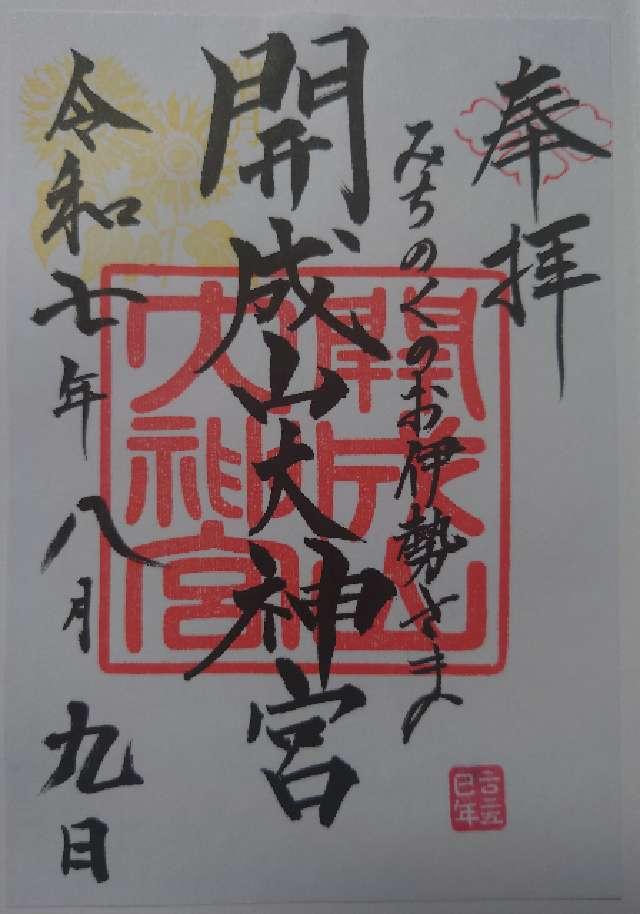 奉拝
みちのくのお伊勢さま
開成山大神宮
令和七年八月九日
開成山
大神宮
二〇二五
巳年